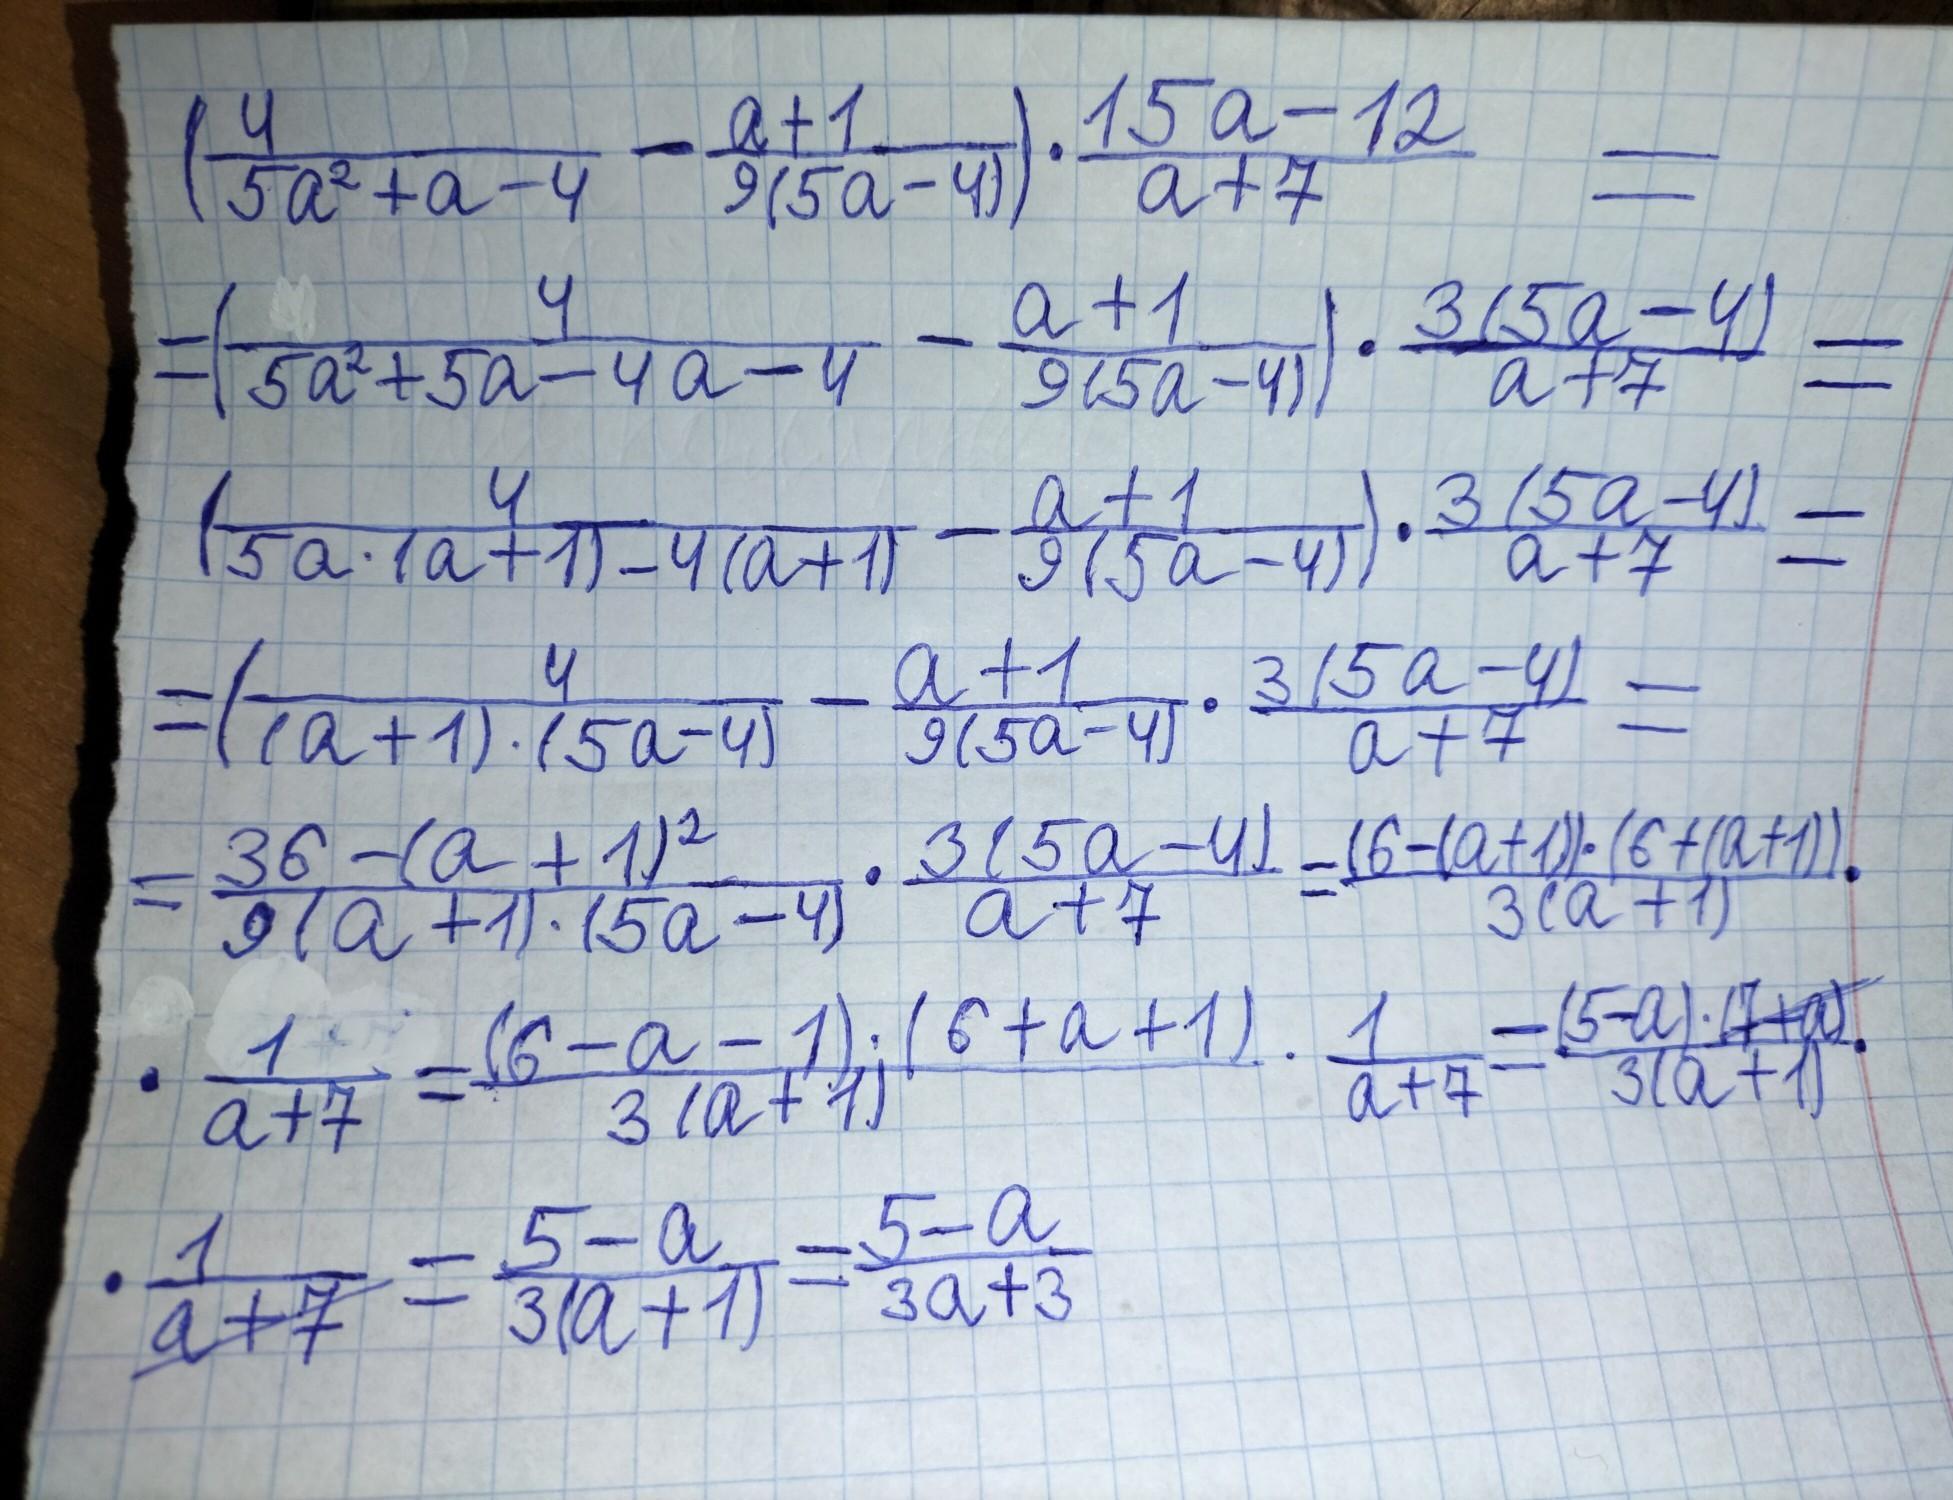 (4/(5a²+a-4) - (a+1)/(9(5a-4))) · (15a-12)/(a+7) =
=(4/(5a²+5a-4a-4) - (a+1)/(9(5a-4))) · 3(5a-4)/(a+7) =
(4/(5a·(a+1)-4(a+1)) - (a+1)/(9(5a-4))) · 3(5a-4)/(a+7) =
=(4/((a+1)·(5a-4)) - (a+1)/(9(5a-4)) · 3(5a-4)/(a+7) =
= (36-(a+1)²)/(9(a+1)·(5a-4)) · 3(5a-4)/(a+7) = (6-(a+1))·(6+(a+1))/(3(a+1)) ·
· 1/(a+7) = (6-a-1)·(6+a+1)/(3(a+1)) · 1/(a+7) = (5-a)·(7+a)/(3(a+1)) ·
· 1/(a+7) = (5-a)/(3(a+1)) = (5-a)/(3a+3)